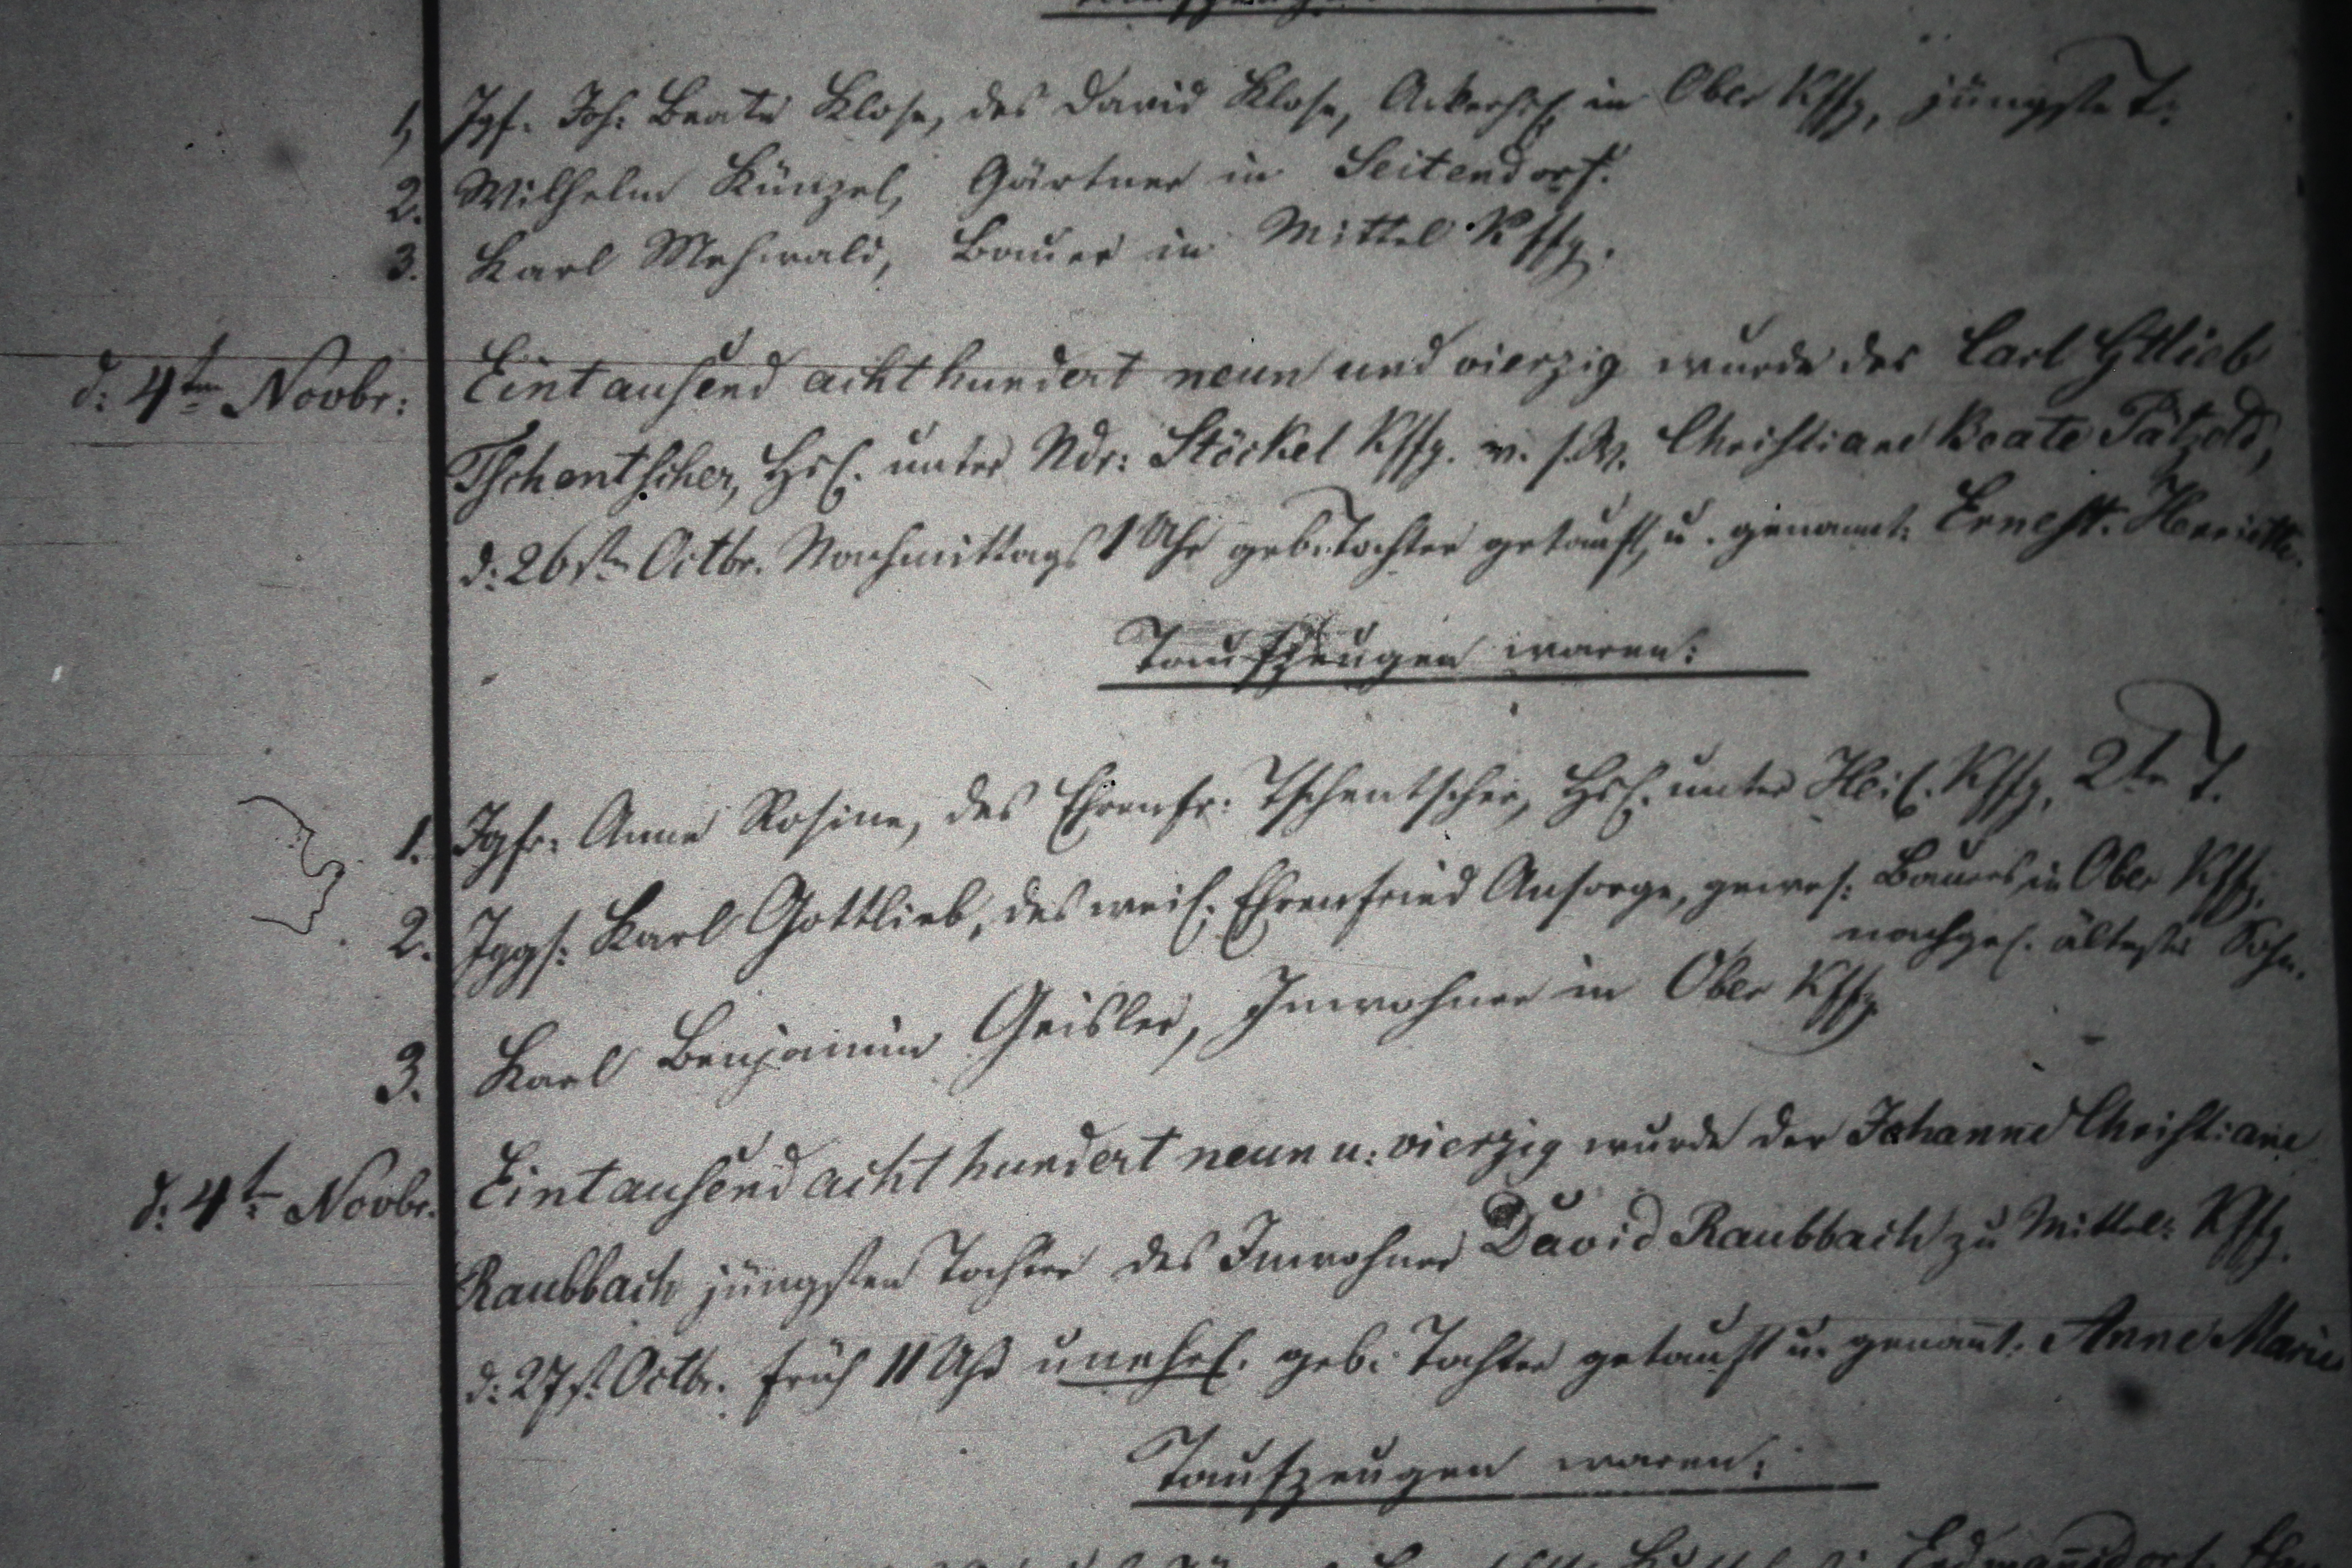 1, Jgf. Joh: Beate Klose, des David Klose, Ackerhsl. in Ober Kffg, jüngste T.
2. Wilhelm Künzel, Gärtner in Seitendorf.
3. Karl Mehwald, Bauer in Mittel Kffg.
d: 4ten Novbr: Eintausend achthundert neun und vierzig wurde des Carl Gttlieb
Tschentscher, Hsl. unter Ndr: Stöckel Kffg. v. s. W. Christiane Beate Pätzold,
d: 26st Octbr. Nachmittags 1 Uhr geb. Tochter getauft, u. genannt: Ernest. Henriette.
Taufzeugen waren:
1. Jgfr. Anne Rosine, des Ehrenfr: Tschentscher, Hsl. unter Heil. Kffg, 2te T.
2. Jggs: Karl Gottlieb, des weil. Ehrenfried Ansorge, gewes: Bauers in Ober Kffg.
nachgel. ältester Sohn.
3. Karl Benjamin Geisler, Inwohner in Ober Kffg
d: 4t Novbr. Eintausend achthundert neun u: vierzig wurde der Johanne Christiane
Raubbach jüngsten Tochter des Inwohner David Raubbach zu Mittel: Kffg.
d: 27st Octbr. früh 11 Uhr unehel. geb: Tochter getauft u. genannt: Anne Marie
Taufzeugen waren: